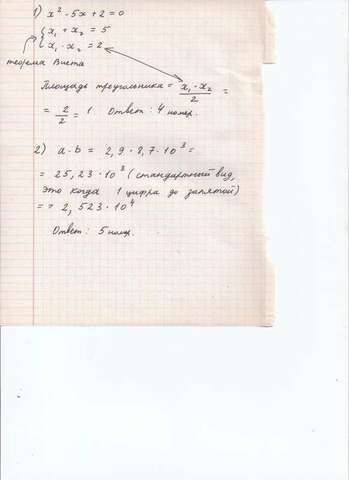 1) x² - 5x + 2 = 0
{ x₁ + x₂ = 5
x₁ · x₂ = 2
теорема Виета
Площадь треугольника = x₁ · x₂ / 2 =
= 2/2 = 1 Ответ: 4 номер.
2) a · b = 2,9 · 8,7 · 10³ =
= 25,23 · 10³ (стандартный вид,
это когда 1 цифра до запятой)
= = 2,523 · 10⁴
Ответ: 5 номер.